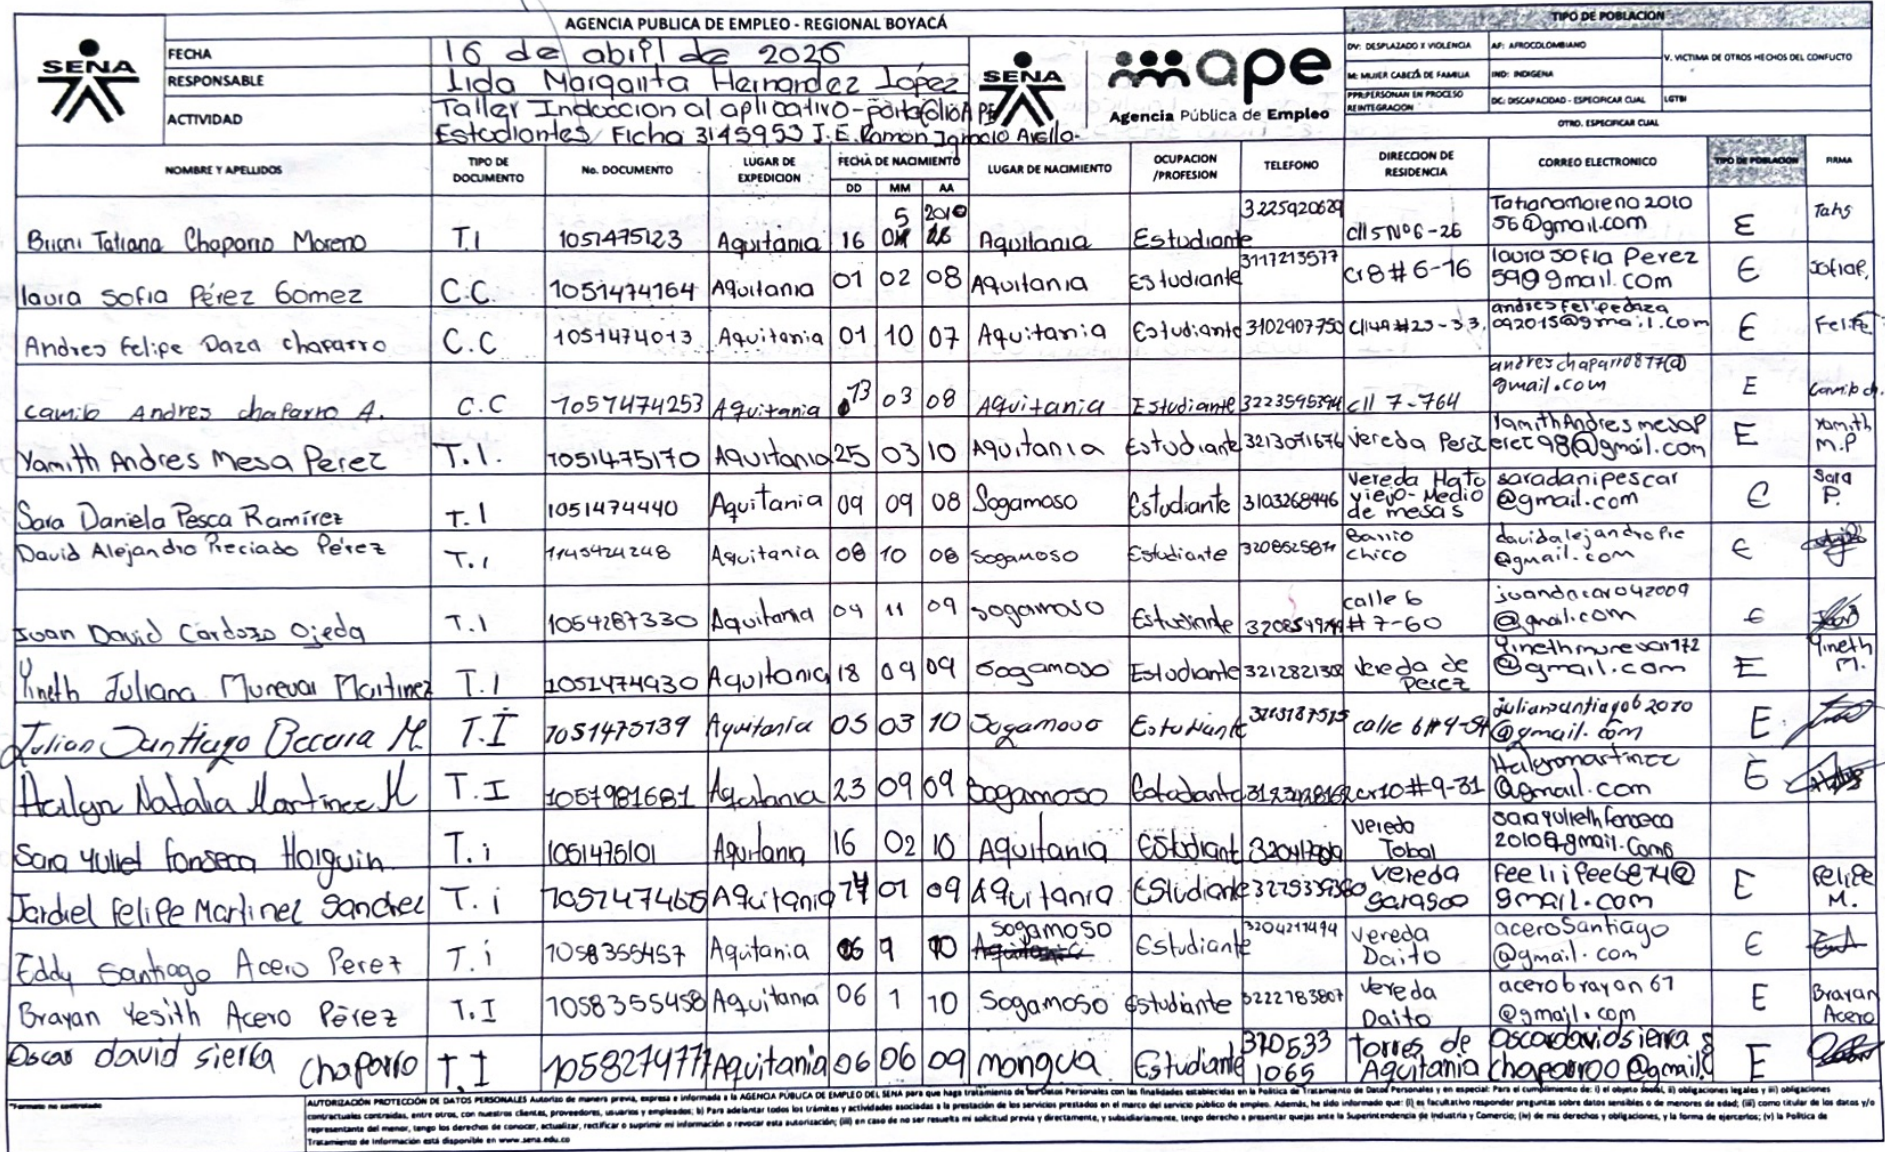 AGENCIA PUBLICA DE EMPLEO - REGIONAL BOYACÁ
TIPO DE POBLACION
SENA
FECHA 16 de abril de 2026
RESPONSABLE Lida Margarita Hernandez López
ACTIVIDAD Taller Induccion al aplicativo-portafolio APE
Estudiantes Ficha 3145953 I.E. Ramon Ignacio Avella-
SENA ape
Agencia Pública de Empleo
DV: DESPLAZADO X VIOLENCIA AF: AFROCOLOMBIANO V. VICTIMA DE OTROS HECHOS DEL CONFLICTO
M: MUJER CABEZA DE FAMILIA IND: INDIGENA
PPR:PERSONAN EN PROCESO REINTEGRACION DC: DISCAPACIDAD - ESPECIFICAR CUAL LGTBI
OTRO. ESPECIFICAR CUAL
NOMBRE Y APELLIDOS TIPO DE DOCUMENTO No. DOCUMENTO LUGAR DE EXPEDICION FECHA DE NACIMIENTO DD MM AA LUGAR DE NACIMIENTO OCUPACION /PROFESION TELEFONO DIRECCION DE RESIDENCIA CORREO ELECTRONICO TIPO DE POBLACION FIRMA
Briani Tatiana Chaparro Moreno T.I 1051475123 Aquitania 16 5 2010 Aquitania Estudiante 3225920629 cll 5 Nº 6-26 Tatianamoreno2010 56@gmail.com E Tahs
laura sofia Pérez Gomez C.C. 1051474164 Aquitania 01 02 08 Aquitania Estudiante 3117213577 cr 8 # 6-16 laura sofia Perez 599gmail.com E Sofia P.
Andres Felipe Daza chaparro C.C 1051474013 Aquitania 01 10 07 Aquitania Estudiante 3102907750 cll 4A #23-33 andresfelipedaza 092015@gmail.com E Felipe
Camilo Andres chaparro A. C.C 1051474253 Aquitania 13 03 08 Aquitania Estudiante 3223595394 cll 7-764 andreschaparro877@ gmail.com E Camilo ch.
Yamith Andres Mesa Perez T.I. 1051475170 Aquitania 25 03 10 Aquitania Estudiante 3213071676 vereda Perez YamithAndresmesaP erez98@gmail.com E Yamith M.P
Sara Daniela Pesca Ramírez T.I 1051474440 Aquitania 09 09 08 Sogamoso Estudiante 3103268446 vereda Hato viejo-Medio de mesas saradanipescar @gmail.com E Sara P.
David Alejandro Preciado Pérez T.I 1145424248 Aquitania 08 10 08 Sogamoso Estudiante Barrio chico davidalejandropre @gmail.com E
Juan David Cardozo Ojeda T.I 1054287330 Aquitania 04 11 09 sogamoso Estudiante calle 6 # 7-60 juandacaro042009 @gmail.com E
Yineth Juliana Munevar Martinez T.I 1051474930 Aquitania 18 09 09 Sogamoso Estudiante vereda de Perez Yinethmunevar172 @gmail.com E Yineth M.
Julian Santiago Becerra M. T.I 1051475139 Aquitania 05 03 10 Sogamoso Estudiante calle 6 # 4-54 juliansantiagob2010 @gmail.com E
Hailyn Natalia Martinez M T.I 1057981681 Aquitania 23 09 09 Sogamoso Estudiante cr 10 # 9-31 @gmail.com E
Sara Yuliet Fonseca Holguin T.i 1051475101 Aquitania 16 02 10 Aquitania Estudiant Vereda Tobal sarayuliethfonseca 2010@gmail.com
Jardiel felipe Martinez Sanchez T.i Aquitania 01 09 Aquitania Estudiante Vereda Sarasoo gmail.com E Felipe M.
Eddy Santiago Acero Perez T.i 1058355457 Aquitania 06 9 10 sogamoso Estudiante 3204211494 Vereda Daito aceroSantiago @gmail.com E
Brayan Yesith Acero Pérez T.I 1058355458 Aquitania 06 1 10 Sogamoso Estudiante 3222783807 vereda Daito acerobrayan67 @gmail.com E Brayan Acero
Oscar david sierra chaparro T.I Aquitania 06 06 09 mongua Estudiante 310533 1065 Torres de Aquitania E
*Formato no controlado
AUTORIZACIÓN PROTECCIÓN DE DATOS PERSONALES Autorizo de manera previa, expresa e informada a la AGENCIA PÚBLICA DE EMPLEO DEL SENA para que haga tratamiento de mis Datos Personales con las finalidades establecidas en la Política de Tratamiento de Datos Personales y en especial: Para el cumplimiento de: i) el objeto social, ii) obligaciones legales y iii) obligaciones
contractuales contraídas, entre otros, con nuestros clientes, proveedores, usuarios y empleados; b) Para adelantar todos los trámites y actividades asociadas a la prestación de los servicios prestados en el marco del servicio público de empleo. Además, he sido informado que: (i) es facultativo responder preguntas sobre datos sensibles o de menores de edad; (ii) como titular de los datos y/o
representante del menor, tengo los derechos de conocer, actualizar, rectificar o suprimir mi información o revocar esta autorización; (iii) en caso de no ser resuelta mi solicitud previa y directamente, y subsidiariamente, tengo derecho a presentar quejas ante la Superintendencia de Industria y Comercio; (iv) de mis derechos y obligaciones, y la forma de ejercerlos; (v) la Política de
Tratamiento de Información está disponible en www.sena.edu.co